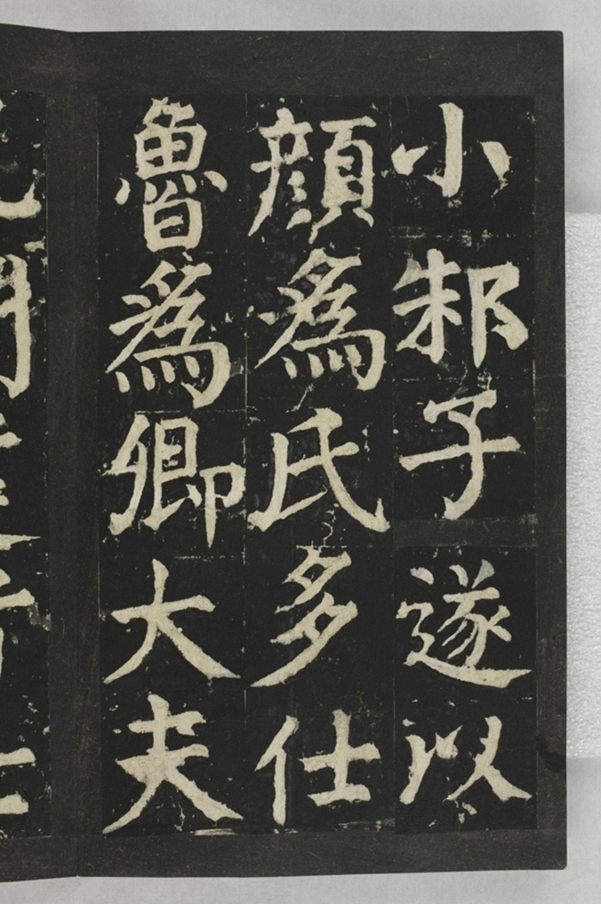 小邾子遂以
顔為氏多仕
魯為卿大夫